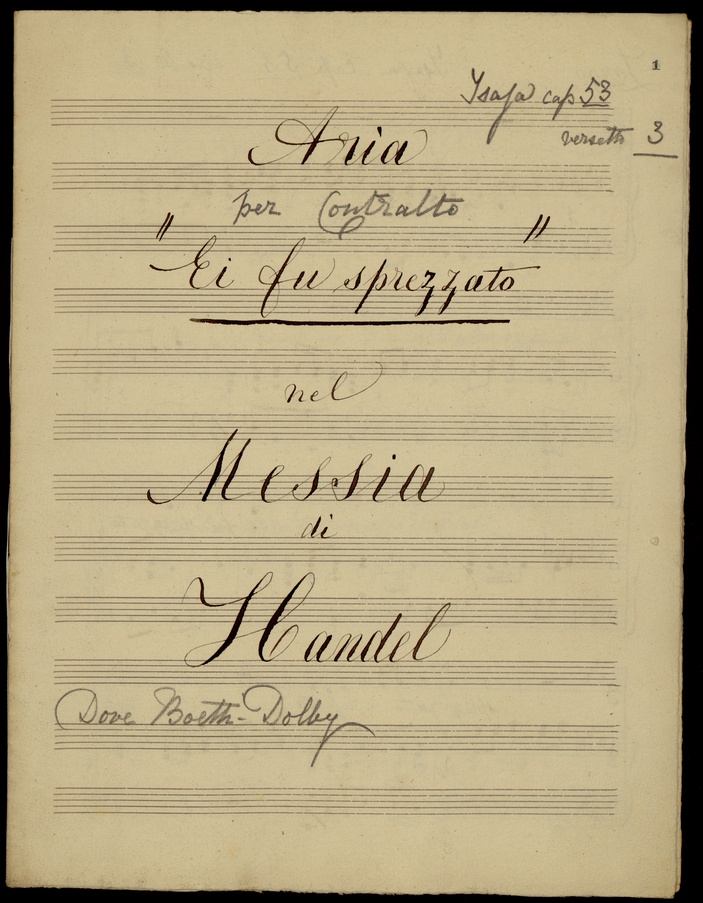 1
Isaia cap 53
versetto 3
Aria
per Contralto
" Ei fu sprezzato "
nel
Messia
di
Handel
Dove Dolby